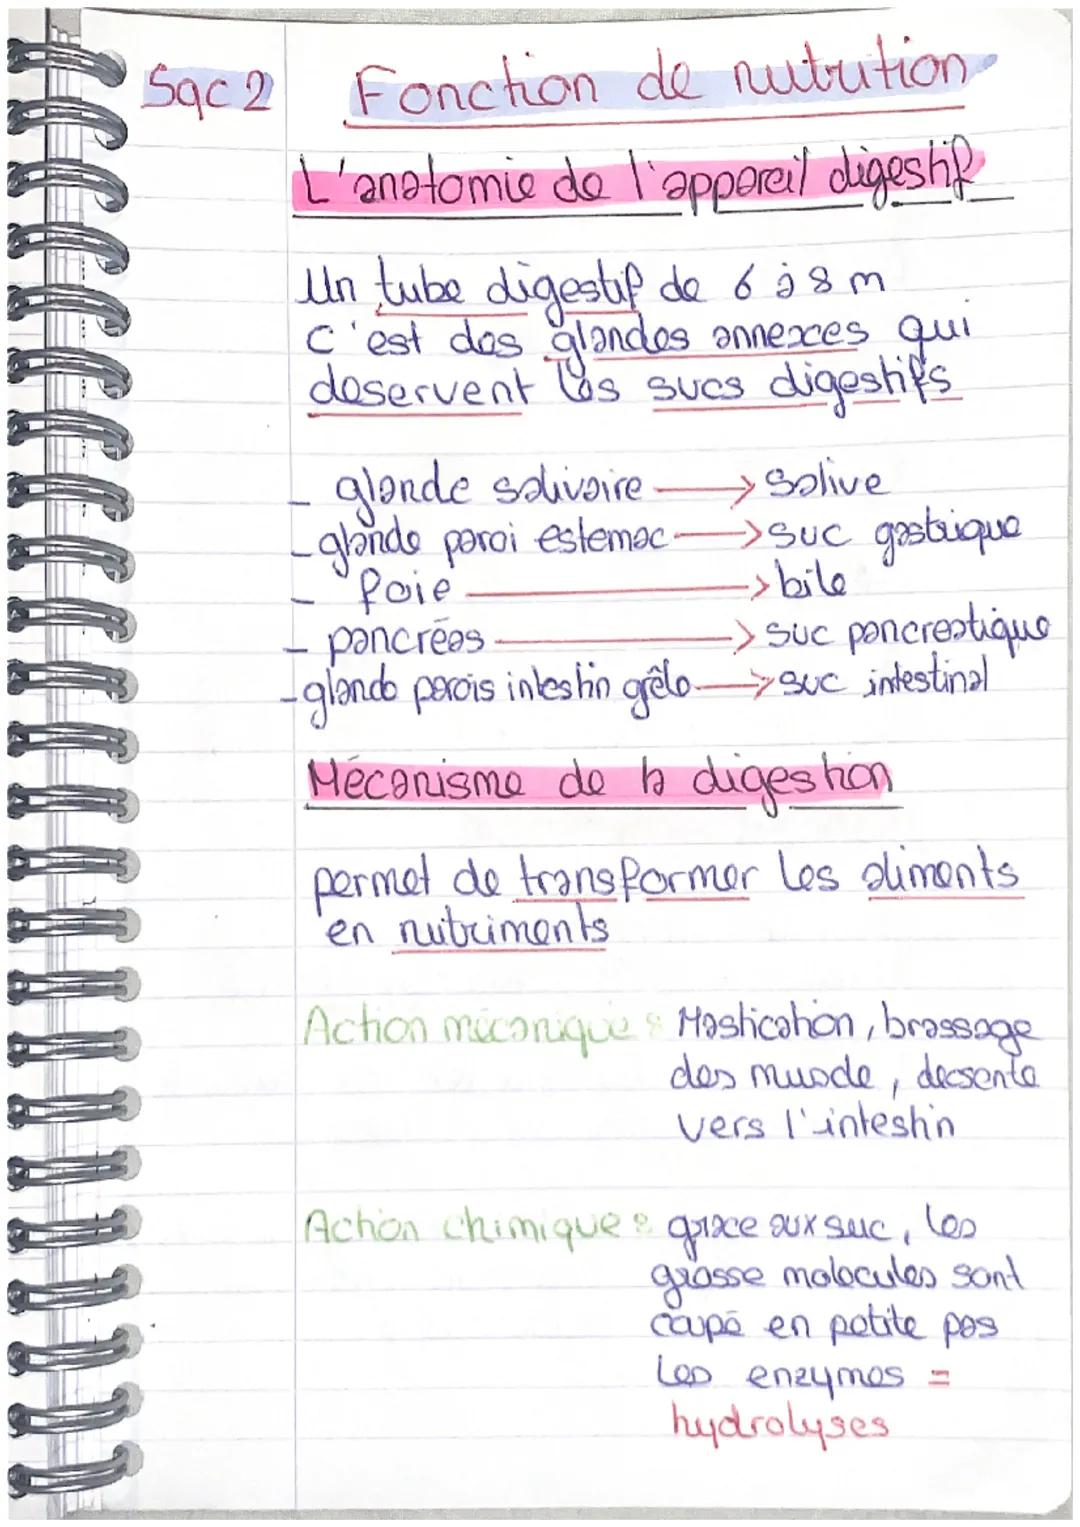 Sqc 2 Fonction de nutrution
L'anatomie de l'appareil digestif
Un tube digestif de 6 à 8 m
C'est des glandes annexces qui
deservent les sucs digestifs
- glande salivaire → Salive
- glande paroi estemac → suc gastrique
- foie → bile
- pancréas → suc pancreatique
- glande parois intestin grêle → suc intestinal
Mécanisme de la digestion
permet de transformer les aliments
en nutriments
Action mécanique : Mastication, brassage
des muscle, decsente
vers l'intestin
Action chimique : grace aux suc, les
grosse molecules sont
coupé en petite pas
Les enzymes =
hydrolyses